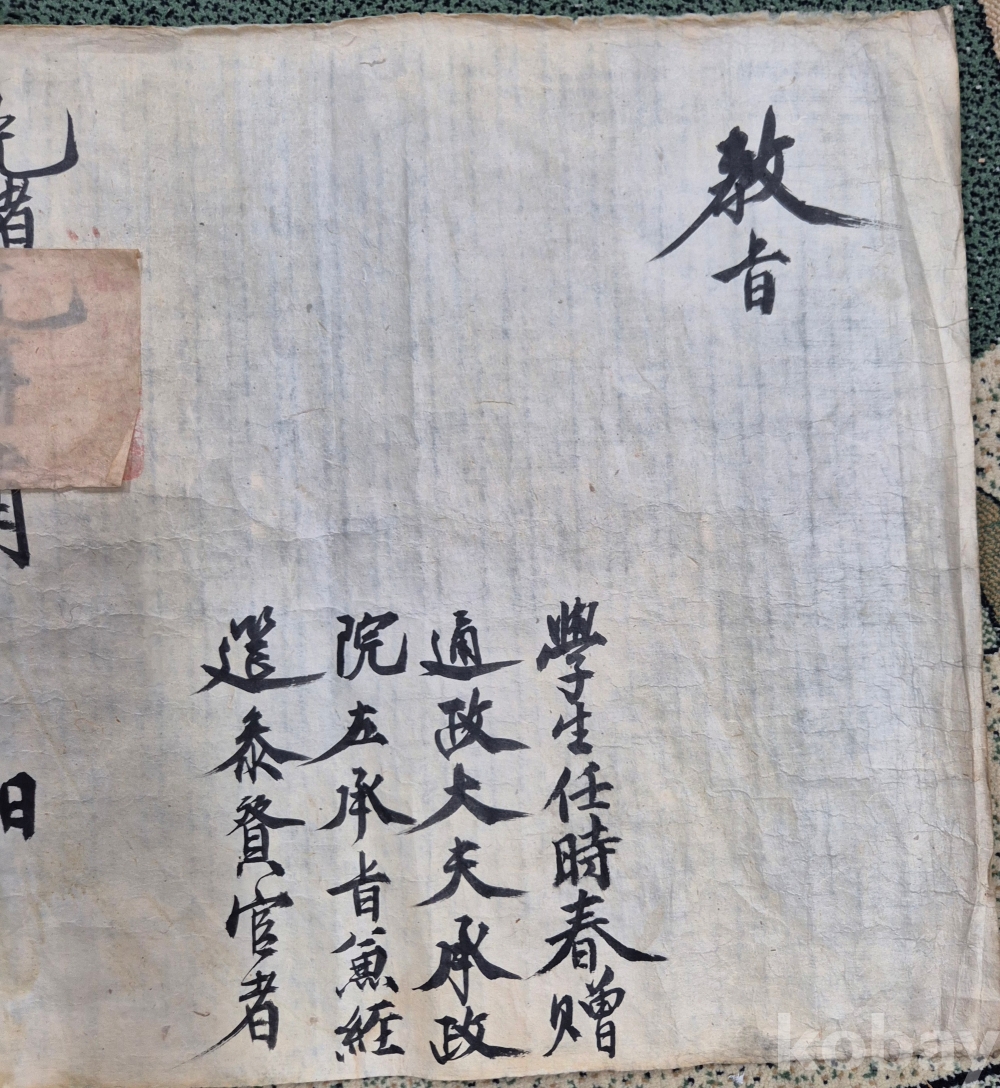 敎
旨
學生任時春贈
通政大夫承政
院左承旨兼經
筵叅贊官者
光緖
月
日
kobay